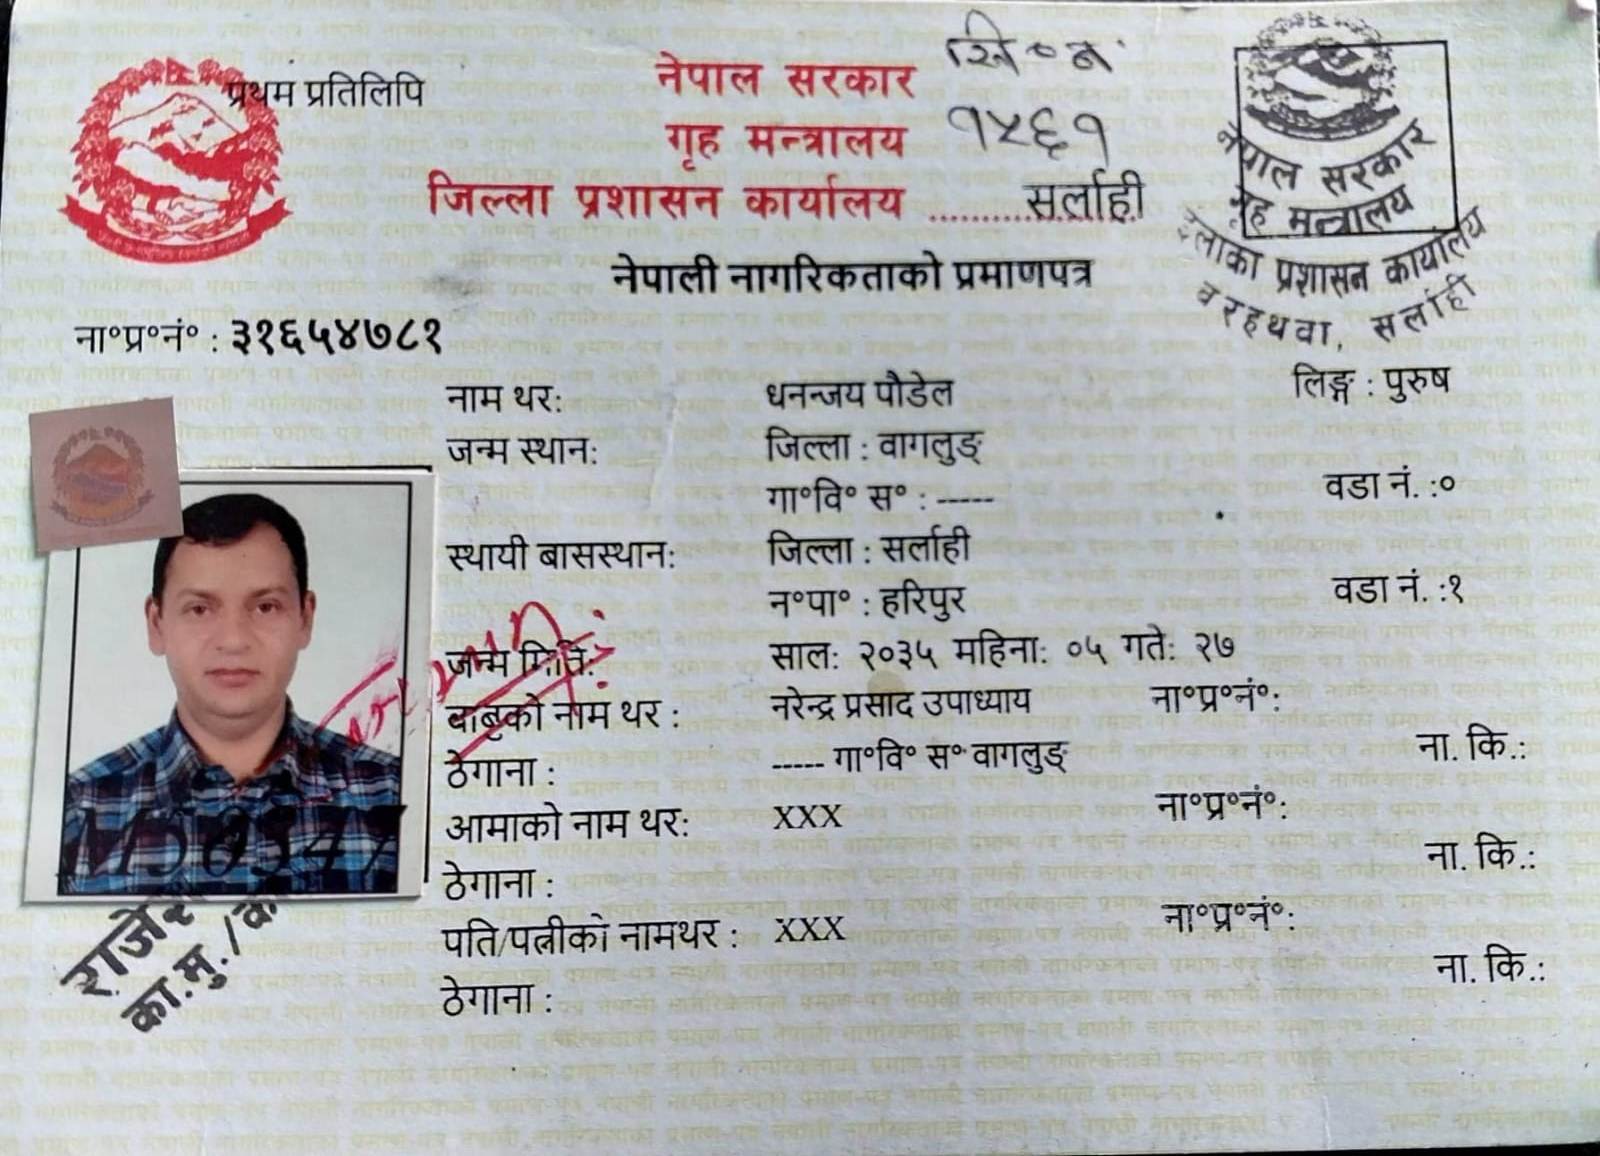 प्रथम प्रतिलिपि
नेपाल सरकार
सि॰नं॰
गृह मन्त्रालय
१५६१
जिल्ला प्रशासन कार्यालय ..................सर्लाही
नेपाल सरकार
गृह मन्त्रालय
इलाका प्रशासन कार्यालय
वरहथवा, सर्लाही
नेपाली नागरिकताको प्रमाणपत्र
ना॰प्र॰नं॰ : ३१६५४७८१
लिङ्ग : पुरुष
नाम थर: धनन्जय पौडेल
जन्म स्थान: जिल्ला : वागलुङ्
गा॰वि॰ स॰ : ----- वडा नं. :०
स्थायी बासस्थान: जिल्ला : सर्लाही
न॰पा॰ : हरिपुर वडा नं. :१
जन्म मिति: साल: २०३५ महिना: ०५ गते: २७
बाबुको नाम थर : नरेन्द्र प्रसाद उपाध्याय ना॰प्र॰नं॰:
ठेगाना : ----- गा॰वि॰ स॰ वागलुङ् ना. कि.:
आमाको नाम थर: XXX ना॰प्र॰नं॰:
ठेगाना : ना. कि.:
पति/पत्नीको नामथर : XXX ना॰प्र॰नं॰:
ठेगाना : ना. कि.:
का.मु./